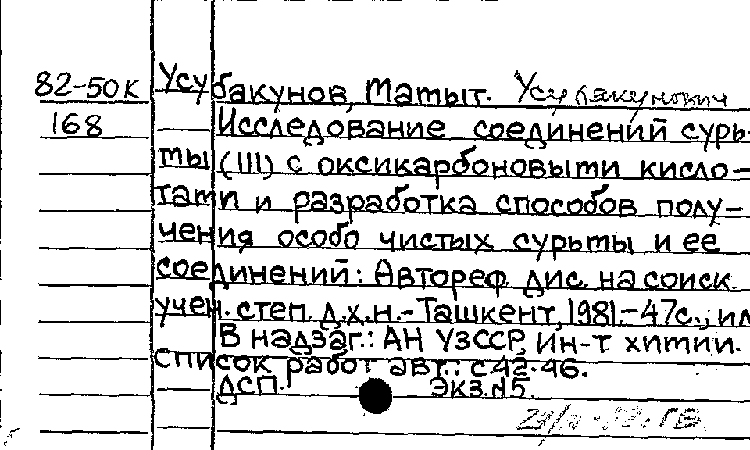 82-50К Усубакунов, Матыт. Усубакунович
168 Исследование соединений сурь-
мы (III) с оксикарбоновыми кисло-
тами и разработка способов полу-
чения особо чистых сурьмы и ее
соединений: Автореф. дис. на соиск.
учен. степ. д.х.н. - Ташкент, 1981. - 47с., ил
В надзаг.: АН УзССР, Ин-т химии.
Список работ авт.: с 42-46.
ДСП. Экз. №5.